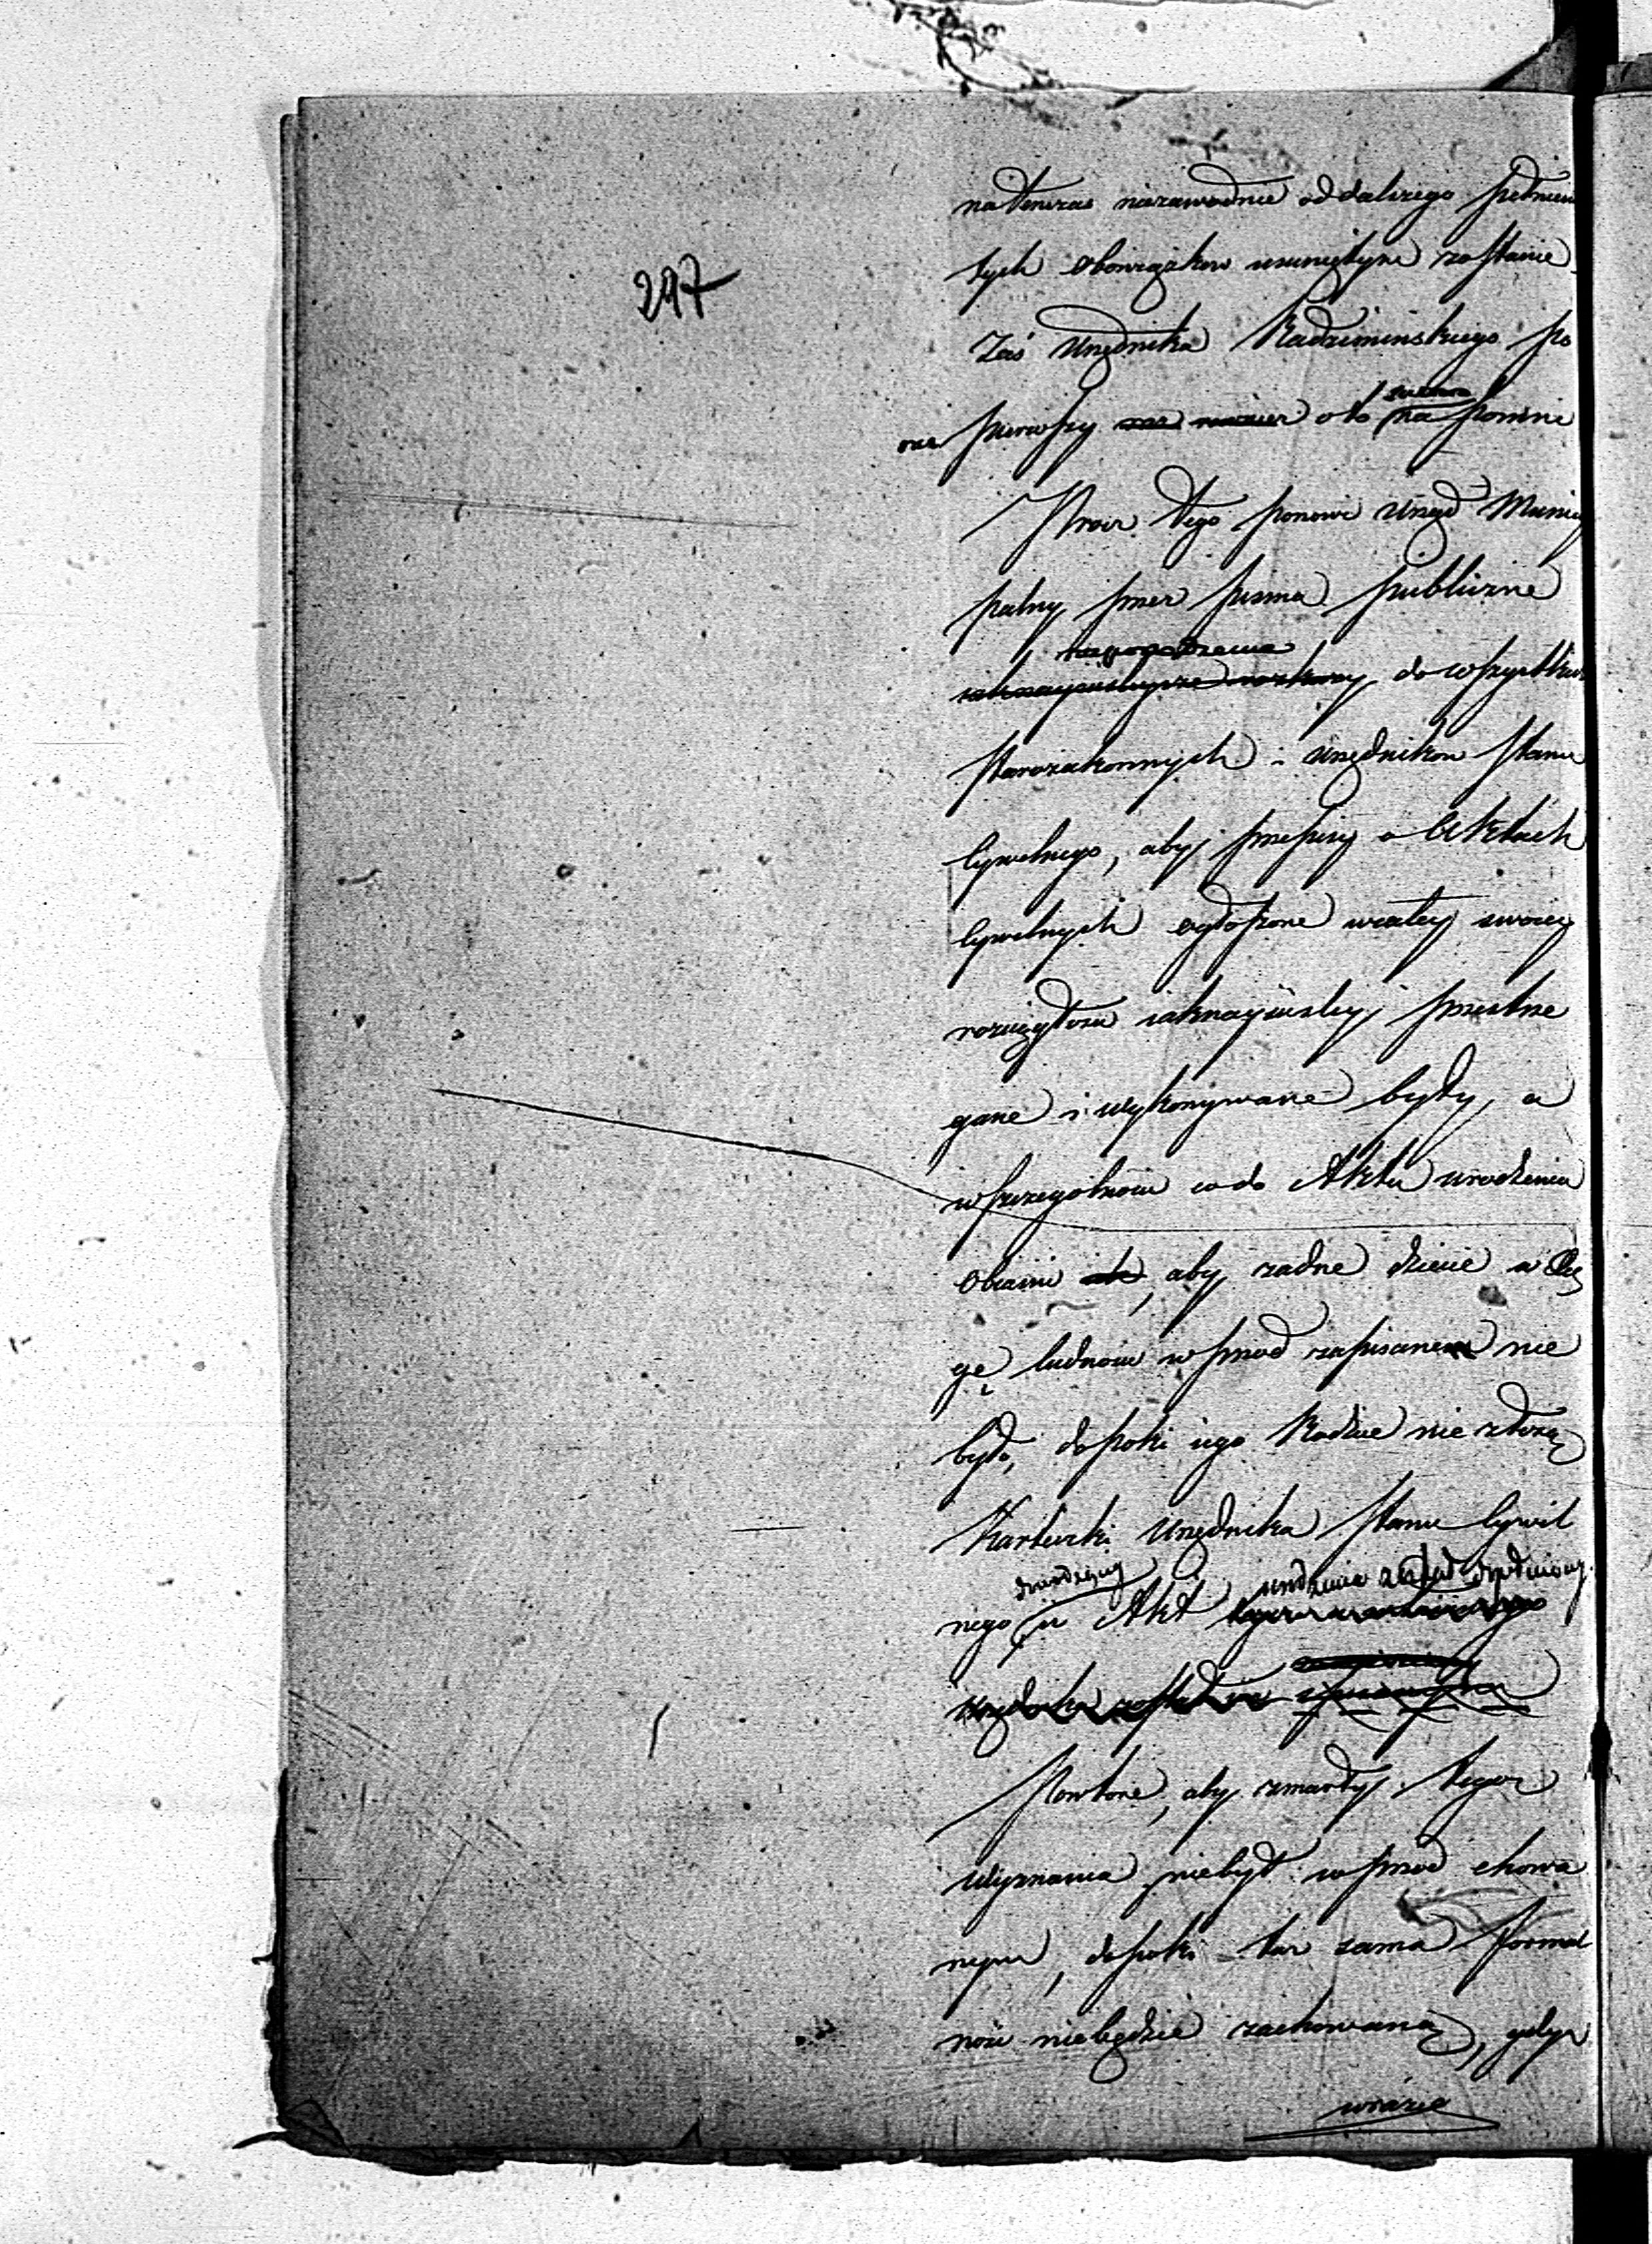 297
natenczas niezawodnie od dalszego pełnieni
tych obowiązkow usuniętym zostanie.
Zaś Urzędnika Radziminskiego po
raz pierwszy oto napomni
Procz tego ponowi Urząd Munic
palny przez pisma publiczne
rozporządzenia
do wszystkich
starozakonnych i urzędnikow stanu
Cywilnego, aby przepisy o Aktach
Cywilnych ogłoszone w całey swoiey
rozciągłosci iaknayściśley przestrze
gane i wykonywane były, a
w szczegolnosci co do Aktu urodzenia
obiaśni aby żadne dziecie w Xię
gę ludnosci wprzod zapisanem nie
było, dopoki iego Rodzice nie złożą
Karteczki Urzędnika Stanu Cywil
nego iż Akt urodzenia
Powtore, aby zmarły tegoż
Wyznania niebył wprzod chowa
nym, dopoki taż sama formal
ność niebędzie zachowaną, gdyż
w razie